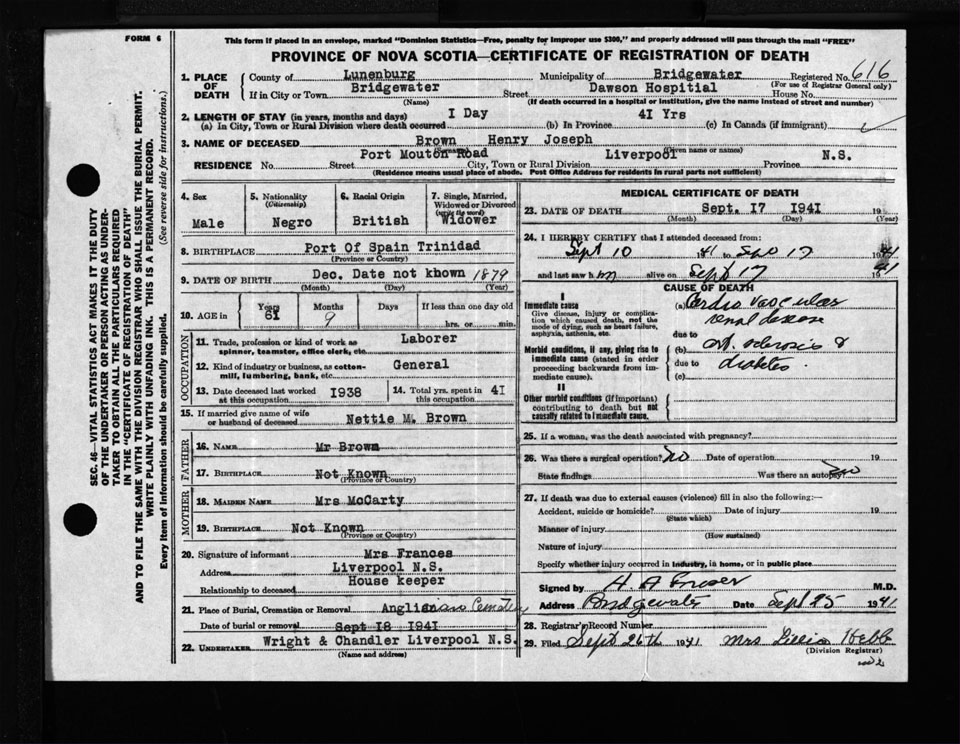 FORM 6
This form if placed in an envelope, marked "Dominion Statistics—Free, penalty for improper use $300," and properly addressed will pass through the mail "FREE"
PROVINCE OF NOVA SCOTIA—CERTIFICATE OF REGISTRATION OF DEATH
1. PLACE OF DEATH County of Lunenburg Municipality of Bridgewater Registered No. 616
(For use of Registrar General only)
If in City or Town Bridgewater Street Dawson Hospitial House No.
(Name) (If death occurred in a hospital or institution, give the name instead of street and number)
2. LENGTH OF STAY (in years, months and days)
(a) In City, Town or Rural Division where death occurred I Day (b) In Province 4I Yrs (c) In Canada (if immigrant)
3. NAME OF DECEASED Brown Henry Joseph
(Surname) (Given name or names)
RESIDENCE No. Street Port Mouton Road City, Town or Rural Division Liverpool Province N.S.
(Residence means usual place of abode. Post Office Address for residents in rural parts not sufficient)
4. Sex Male
5. Nationality (Citizenship) Negro
6. Racial Origin British
7. Single, Married, Widowed or Divorced (write the word) Widower
8. BIRTHPLACE Port Of Spain Trinidad
(Province or Country)
9. DATE OF BIRTH Dec. Date not khown 1879
(Month) (Day) (Year)
10. AGE in Years 61 Months 9 Days If less than one day old hrs. or min.
OCCUPATION
11. Trade, profession or kind of work as spinner, teamster, office clerk, etc. Laborer
12. Kind of industry or business, as cotton-mill, lumbering, bank, etc. General
13. Date deceased last worked at this occupation I938
14. Total yrs. spent in this occupation 4I
15. If married give name of wife or husband of deceased Nettie M. Brown
FATHER
16. NAME Mr Brown
17. BIRTHPLACE Not Known
(Province or Country)
MOTHER
18. MAIDEN NAME Mrs McCarty
19. BIRTHPLACE Not Known
(Province or Country)
20. Signature of informant Mrs Frances
Address Liverpool N.S.
Relationship to deceased House keeper
21. Place of Burial, Cremation or Removal Anglican Cemetery
Date of burial or removal Sept I8 I94I
22. UNDERTAKER Wright & Chandler Liverpool N.S.
(Name and address)
MEDICAL CERTIFICATE OF DEATH
23. DATE OF DEATH Sept. I7 I94I 19
(Month) (Day) (Year)
24. I HEREBY CERTIFY that I attended deceased from:
Sept 10 1941 to Sep 17 1941
and last saw h m alive on Sept 17 1941
CAUSE OF DEATH
I
Immediate cause
Give disease, injury or complication which caused death, not the mode of dying, such as heart failure, asphyxia, asthenia, etc.
(a) Cardio vascular
renal disease
due to
Morbid conditions, if any, giving rise to immediate cause (stated in order proceeding backwards from immediate cause).
(b) Art. sclerosis &
due to diabetes
(c)
II
Other morbid conditions (if important) contributing to death but not causally related to immediate cause.
25. If a woman, was the death associated with pregnancy?
26. Was there a surgical operation? no Date of operation 19
State findings Was there an autopsy? no
27. If death was due to external causes (violence) fill in also the following:—
Accident, suicide or homicide? Date of injury 19
(State which)
Manner of injury
(How sustained)
Nature of injury
Specify whether injury occurred in industry, in home, or in public place
Signed by H A M.D.
Address Bridgewater Date Sept 25 1941
28. Registrar's Record Number
29. Filed Sept 26th 1941 Mrs Hebb
(Division Registrar)
SEC. 46—VITAL STATISTICS ACT MAKES IT THE DUTY
OF THE UNDERTAKER OR PERSON ACTING AS UNDER-
TAKER TO OBTAIN ALL THE PARTICULARS REQUIRED
IN THE "CERTIFICATE OF REGISTRATION OF DEATH"
AND TO FILE THE SAME WITH THE DIVISION REGISTRAR WHO SHALL ISSUE THE BURIAL PERMIT.
WRITE PLAINLY WITH UNFADING INK. THIS IS A PERMANENT RECORD.
Every item of information should be carefully supplied. (See reverse side for instructions.)